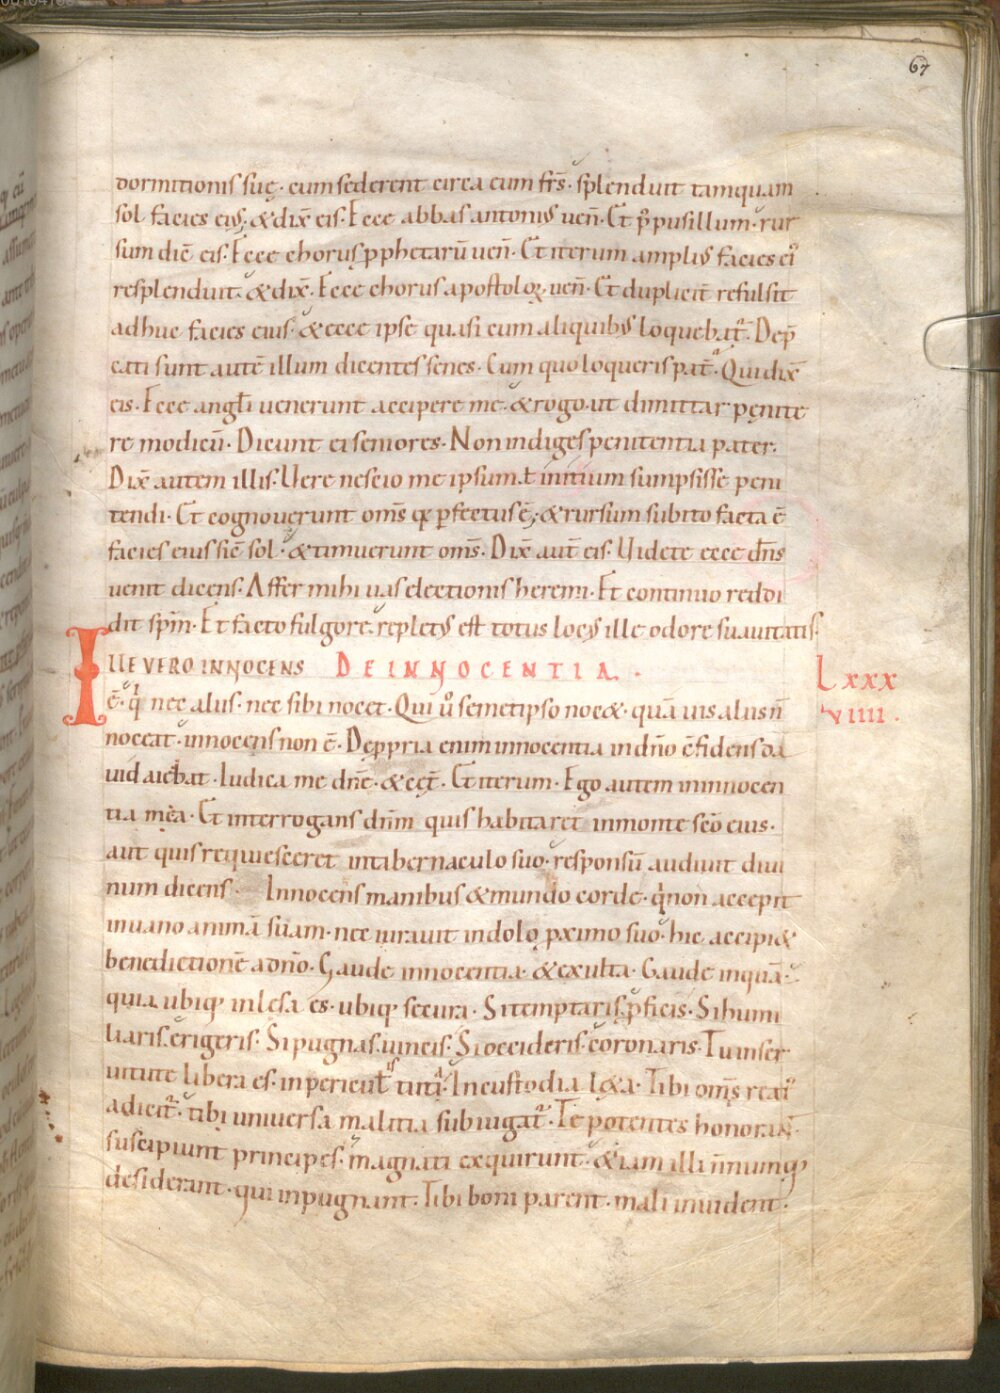 67
dormitionis suę. cum sederent circa eum fr̄s. splenduit tamquam
sol facies ei᷒. & dix̄ eis. Ecce abbas antoni᷒ ueñ. Et p̄ pusillum. rur
sum dic̄ eis. Ecce chorus ꝓphetarū ueñ. Et iterum ampli᷒ facies ei᷒
resplenduit. & dix̄. Ecce chorus apostoloꝝ ueñ. Et duplicit̄ refulsit
adhuc facies eius. & ecce ipse quasi cum aliquib᷒ loquebat᷑. Dep̄
cati sunt autē illum dicentes senes. Cum quo loqueris pat̄. Qui dix̄
eis. Ecce angl̄i uenerunt accipere me. & rogo. ut dimittar pęnite
re modicū. Dicunt ei seniores. Non indiges penitentia pater.
Dix̄ autem illis. Uere nescio me ipsum. ł initium sumpsisse peni
tendi. Et cognouerunt om̄s qꝫ ꝑfectus ē. & rursum subito facta ē
facies eius sic̄ sol. & timuerunt om̄s. Dix̄ aut̄ eis. Uidete ecce dn̄s
uenit dicens. Affer mihi uas electionis heremi. Et continuo reddi
dit sp̄m. Et facto fulgore. replet᷒ est totus loc᷒ ille odore suauitatis.
ILLE VERO INNOCENS DE INNOCENTIA.
Lxxx
VIIII.
ē. qͥ nec aliis. nec sibi nocet. Qui u͛o semetipso noc&. quā uis aliis n̄
noceat. innocens non ē. De ꝓpria enim innocentia in dn̄o c̄fidens da
uid aiebat. Iudica me dn̄e. & cet̄. Et iterum. Ego autem in innocen
tia mea. Et interrogans dn̄m quis habitaret in monte sc̄o eius.
aut quis requiesceret in tabernaculo suo. responsū audiuit diui
num dicens. Innocens manibus & mundo corde. qͥ non accepit
in uano animā suam. nec iurauit in dolo ꝓximo suo. hic accipi&
benedictionē a dn̄o. Gaude innocentia & exulta. Gaude inquā.
quia ubiqꝫ inlesa es. ubiqꝫ secura. Si temptaris. ꝓficis. Si humi
liaris. erigeris. Si pugnas. uincis. Si occideris. coronaris. Tu in ser
uitute libera es. in pericul̄is tuta. In custodia lęta. Tibi om̄s reat᷒
adicit᷑. tibi uniuersa malitia subiugat᷑. Te potentes honorant.
suscipiunt principes. magnati exquirunt. & iam illi n̄nunqꝫ
desiderant. qui inpugnant. Tibi boni parent. mali inuident.